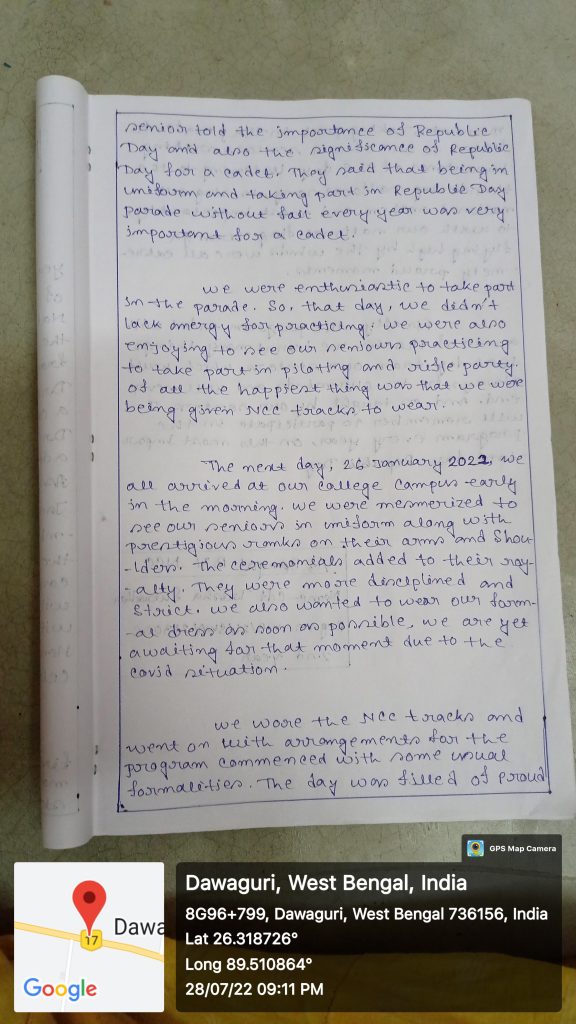 senior told the importance of Republic
Day and also the significance of Republic
Day for a cadet. They said that being in
uniform and taking part in Republic Day
parade without fail every year was very
important for a cadet.
we were enthusiastic to take part
in the parade. So, that day, we didn't
lack energy for practicing. we were also
enjoying to see our seniours practicing
to take part in piloting and rifle party.
Of all the happiest thing was that we were
being given NCC tracks to wear.
The next day, 26 January 2022, we
all arrived at our college campus early
in the morning. we were mesmerized to
see our seniors in uniform along with
prestigious ranks on their arms and Shou-
-lders. The ceremonials added to their roy-
-alty. They were more disciplined and
strict. we also wanted to wear our form-
-al dress as soon as possible, we are yet
awaiting for that moment due to the
covid situation.
we wore the NCC tracks and
went on with arrangements for the
program commenced with some usual
formalities. The day was filled of proud
GPS Map Camera
Dawaguri, West Bengal, India
8G96+799, Dawaguri, West Bengal 736156, India
Lat 26.318726°
Long 89.510864°
28/07/22 09:11 PM
17
Dawa
Google